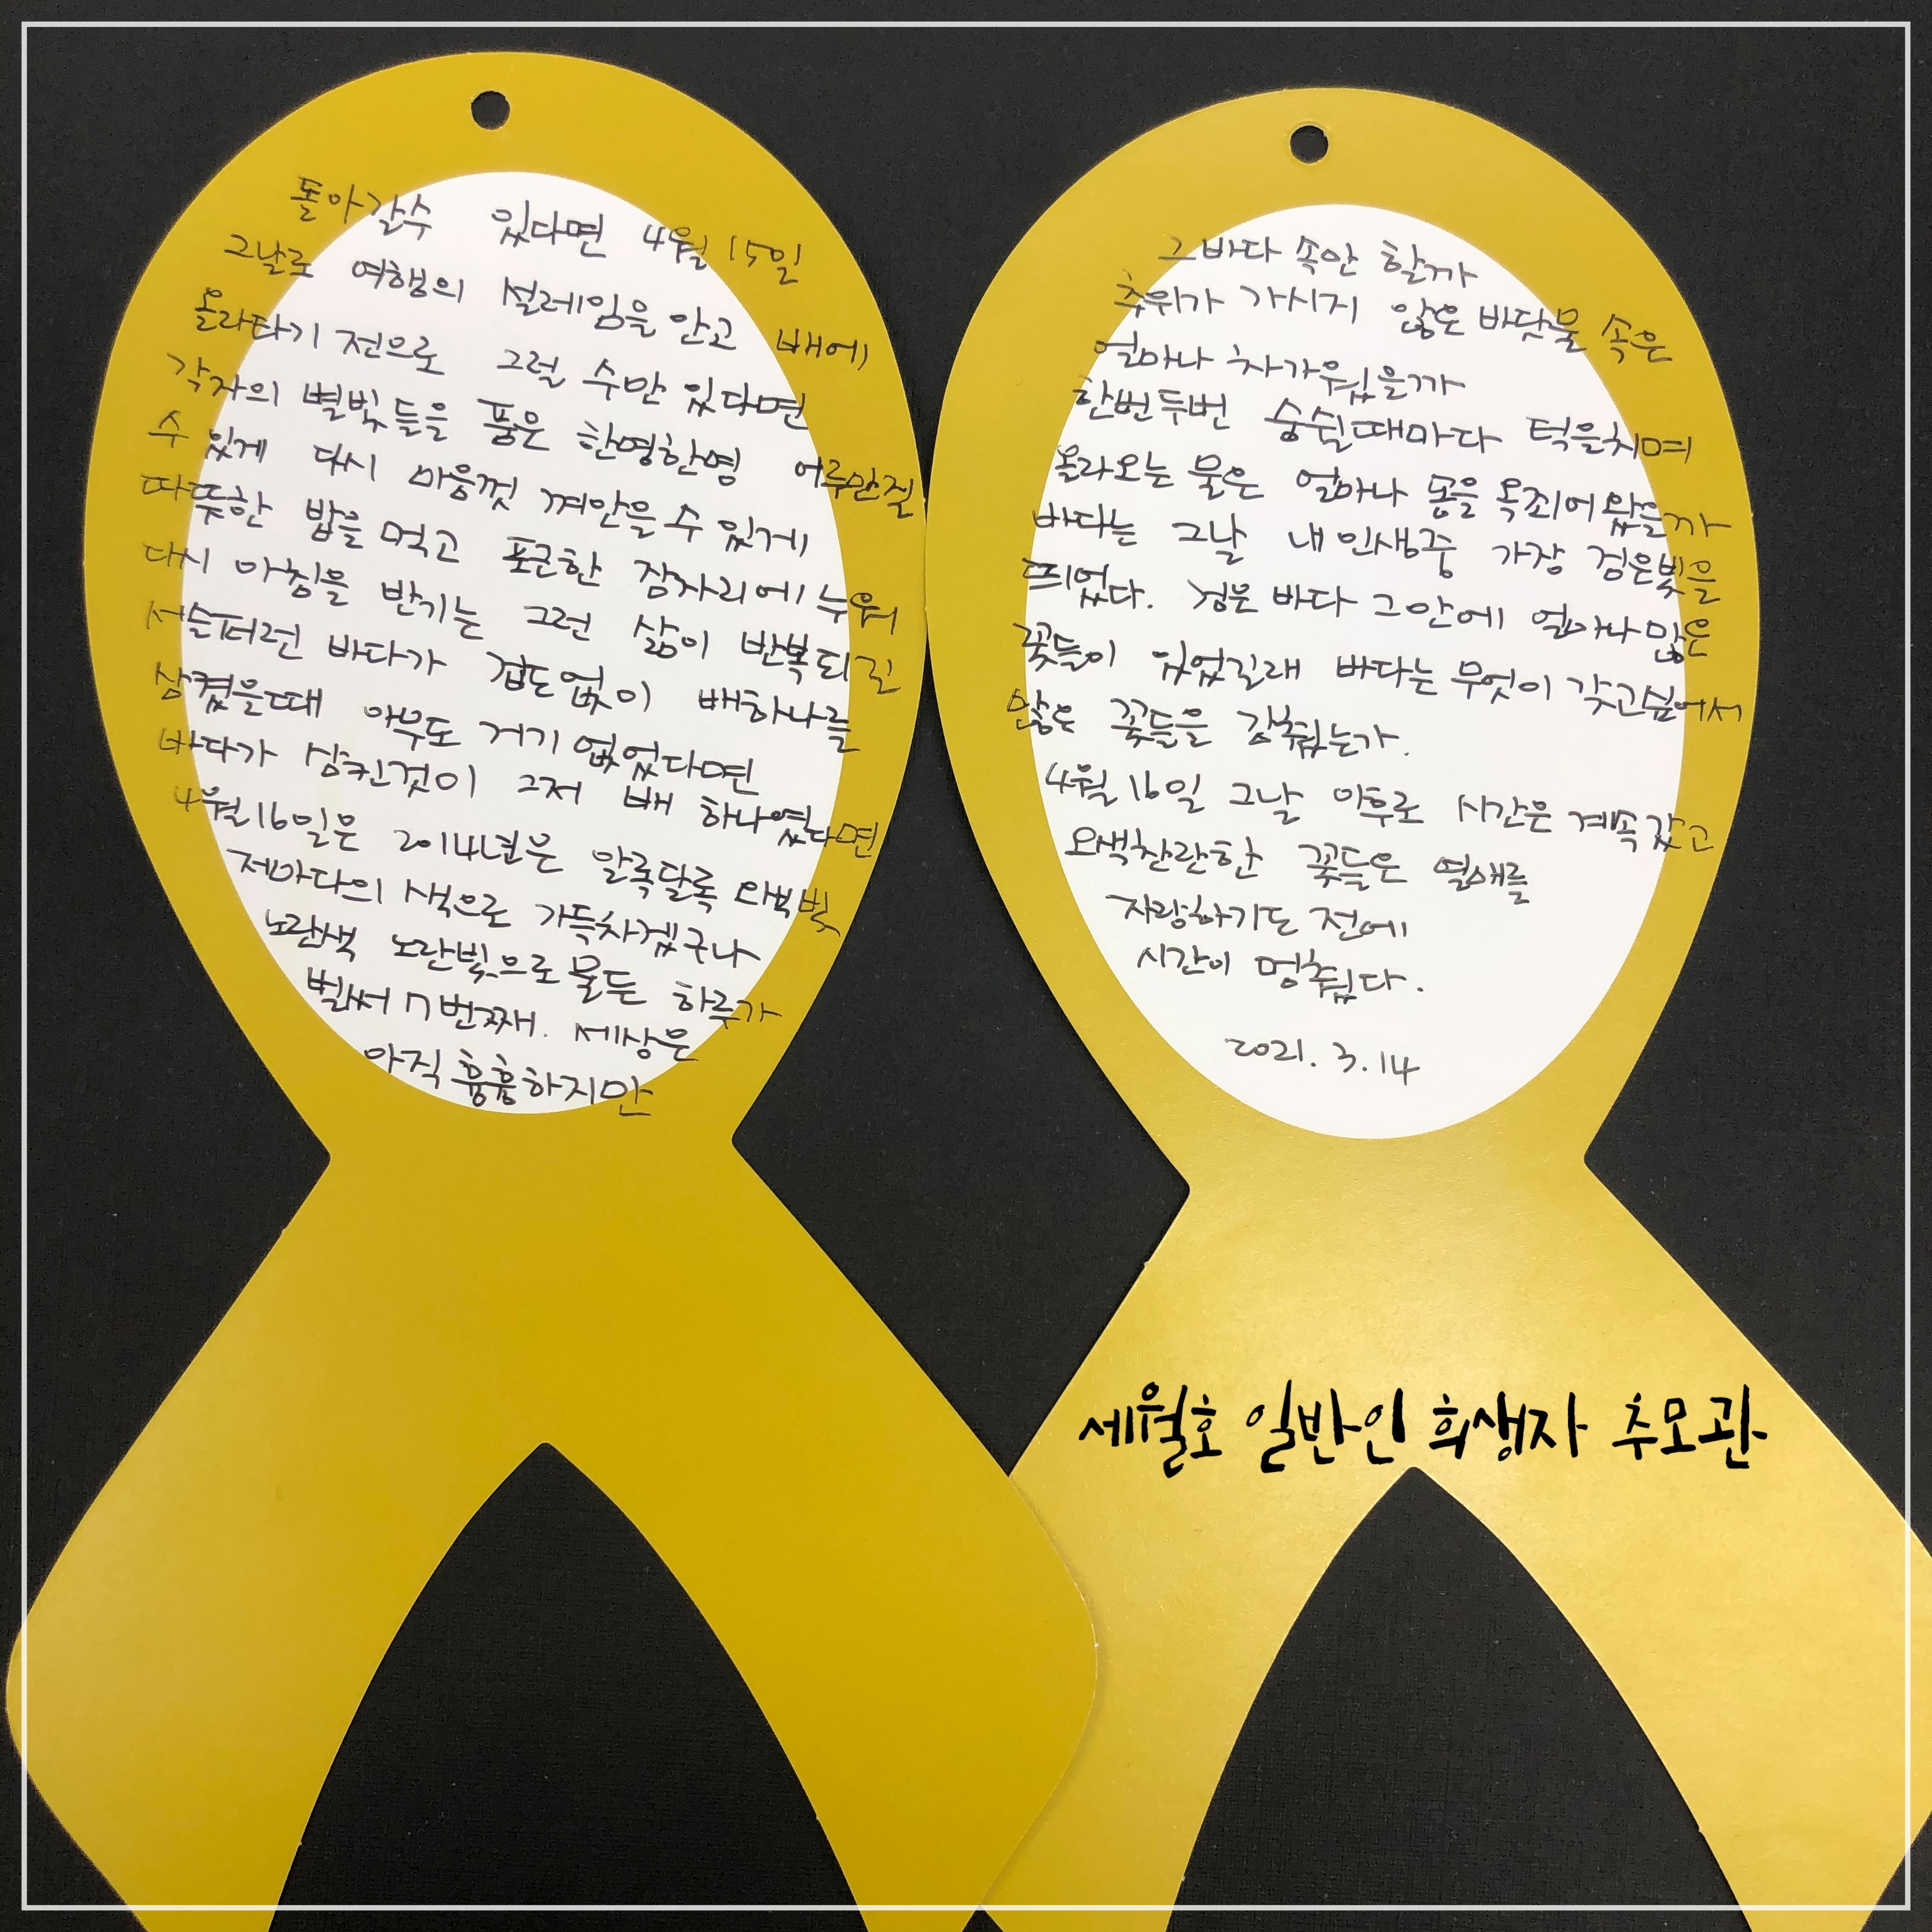 돌아갈수 있다면 4월 15일
그날로 여행의 설레임을 안고 배에
올라타기 전으로 그럴 수만 있다면
각자의 별빛들을 품은 한명한명 어루만질
수 있게 다시 마음껏 껴안을 수 있게
따뜻한 밥을 먹고 포근한 잠자리에 누워
다시 아침을 반기는 그런 삶이 반복되길
서슬퍼런 바다가 겁도없이 배하나를
삼켰을때 아무도 거기 없었다면
바다가 삼킨것이 그저 배 하나였다면
4월16일은 2014년은 알록달록
제마다의 색으로 가득차겠구나
노란색 노란빛으로 물든 하루가
벌써 7번째. 세상은
아직 흉흉하지만
그 바다 속만 할까
추위가 가시지 않은 바닷물 속은
얼마나 차가웠을까
한번두번 숨쉴때마다 턱을치며
올라오는 물은 얼마나 몸을 옥죄어왔을까
바다는 그날 내 인생중 가장 검은빛을
띄었다. 검은 바다 그안에 얼마나 많은
꽃들이 있었길래 바다는 무엇이 갖고싶어서
많은 꽃들을 감췄는가.
4월 16일 그날 이후로 시간은 계속 갔고
오색찬란한 꽃들은 열매를
자랑하기도 전에
시간이 멈췄다.
2021. 3. 14
세월호 일반인 희생자 추모관